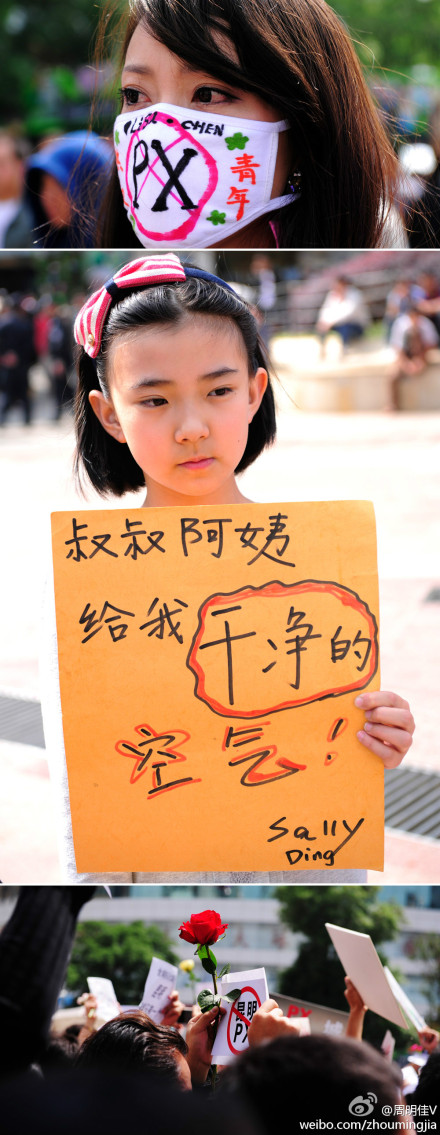 LiSA·CHEN
PX
青年
叔叔阿姨
给我干净的
空气!
Sally
Ding
昆明
PX
@周明佳V
weibo.com/zhoumingjia